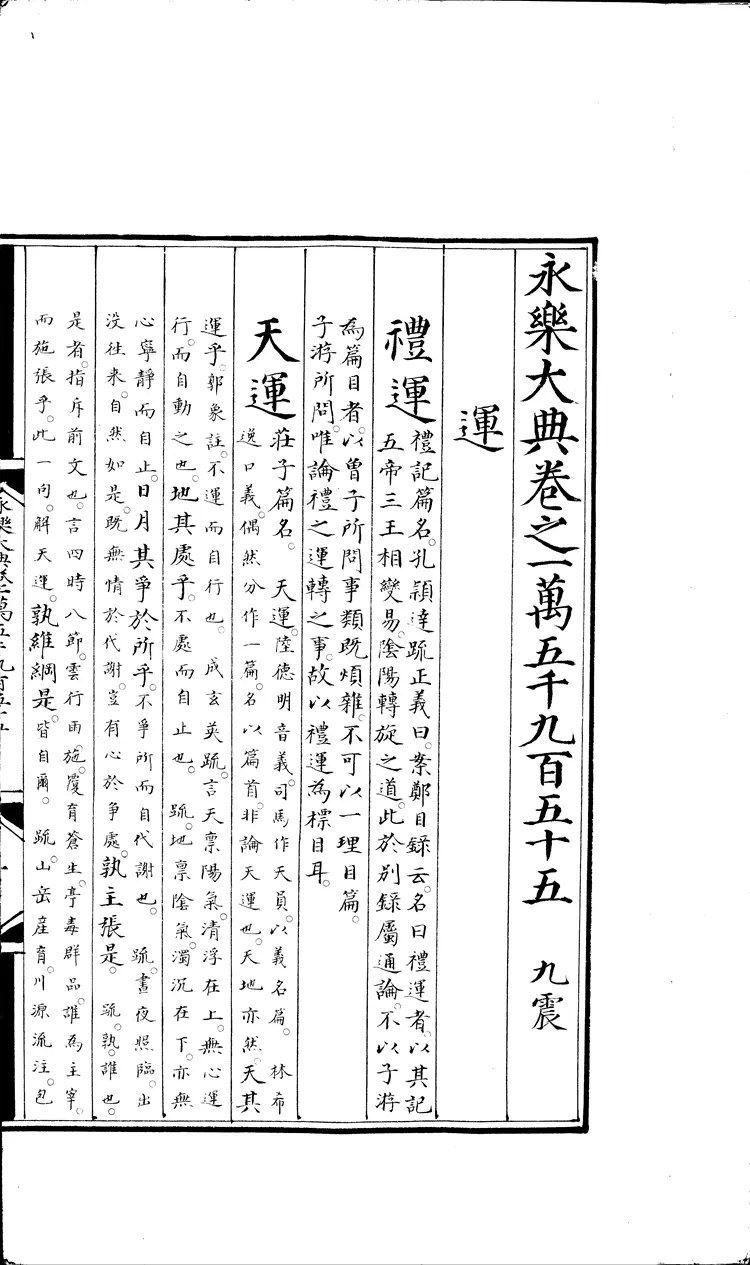 永樂大典卷之一萬五千九百五十五 九震
運
禮運
禮記篇名。孔頴達疏正義曰。案鄭目録云。名曰禮運者。以其記
五帝三王相變易。陰陽轉旋之道。此於别録屬通論。不以子游
為篇目者。以曽子所問事類既煩雜。不可以一理目篇。
子游所問。唯論禮之運轉之事。故以禮運為標目耳。
天運
莊子篇名。 天運。陸徳明音義。司馬作天員。以義名篇。 林希
逸口義。偶然分作一篇。名以篇首。非論天運也。天地亦然。天其
運乎。郭象註。不運而自行也。 成玄英疏。言天禀陽氣。清浮在上。無心運
行。而自動之也。地其處乎。不處而自止也。 疏。地禀陰氣。濁沉在下。亦無
心寧静而自止。日月其爭於所乎。不爭所而自代謝也。 疏。晝夜照臨。出
没往来。自然如是。既無情於代謝。豈有心於爭處。孰主張是。 疏。孰。誰也。
是者。指斥前文也。言四時八節。雲行雨施。覆育蒼生。亭毒群品。誰為主宰。
而施張乎。此一句。解天運。孰維綱是。皆自爾。 疏。山岳産育。川源流注。包
永樂大典卷一萬五千九百五十五